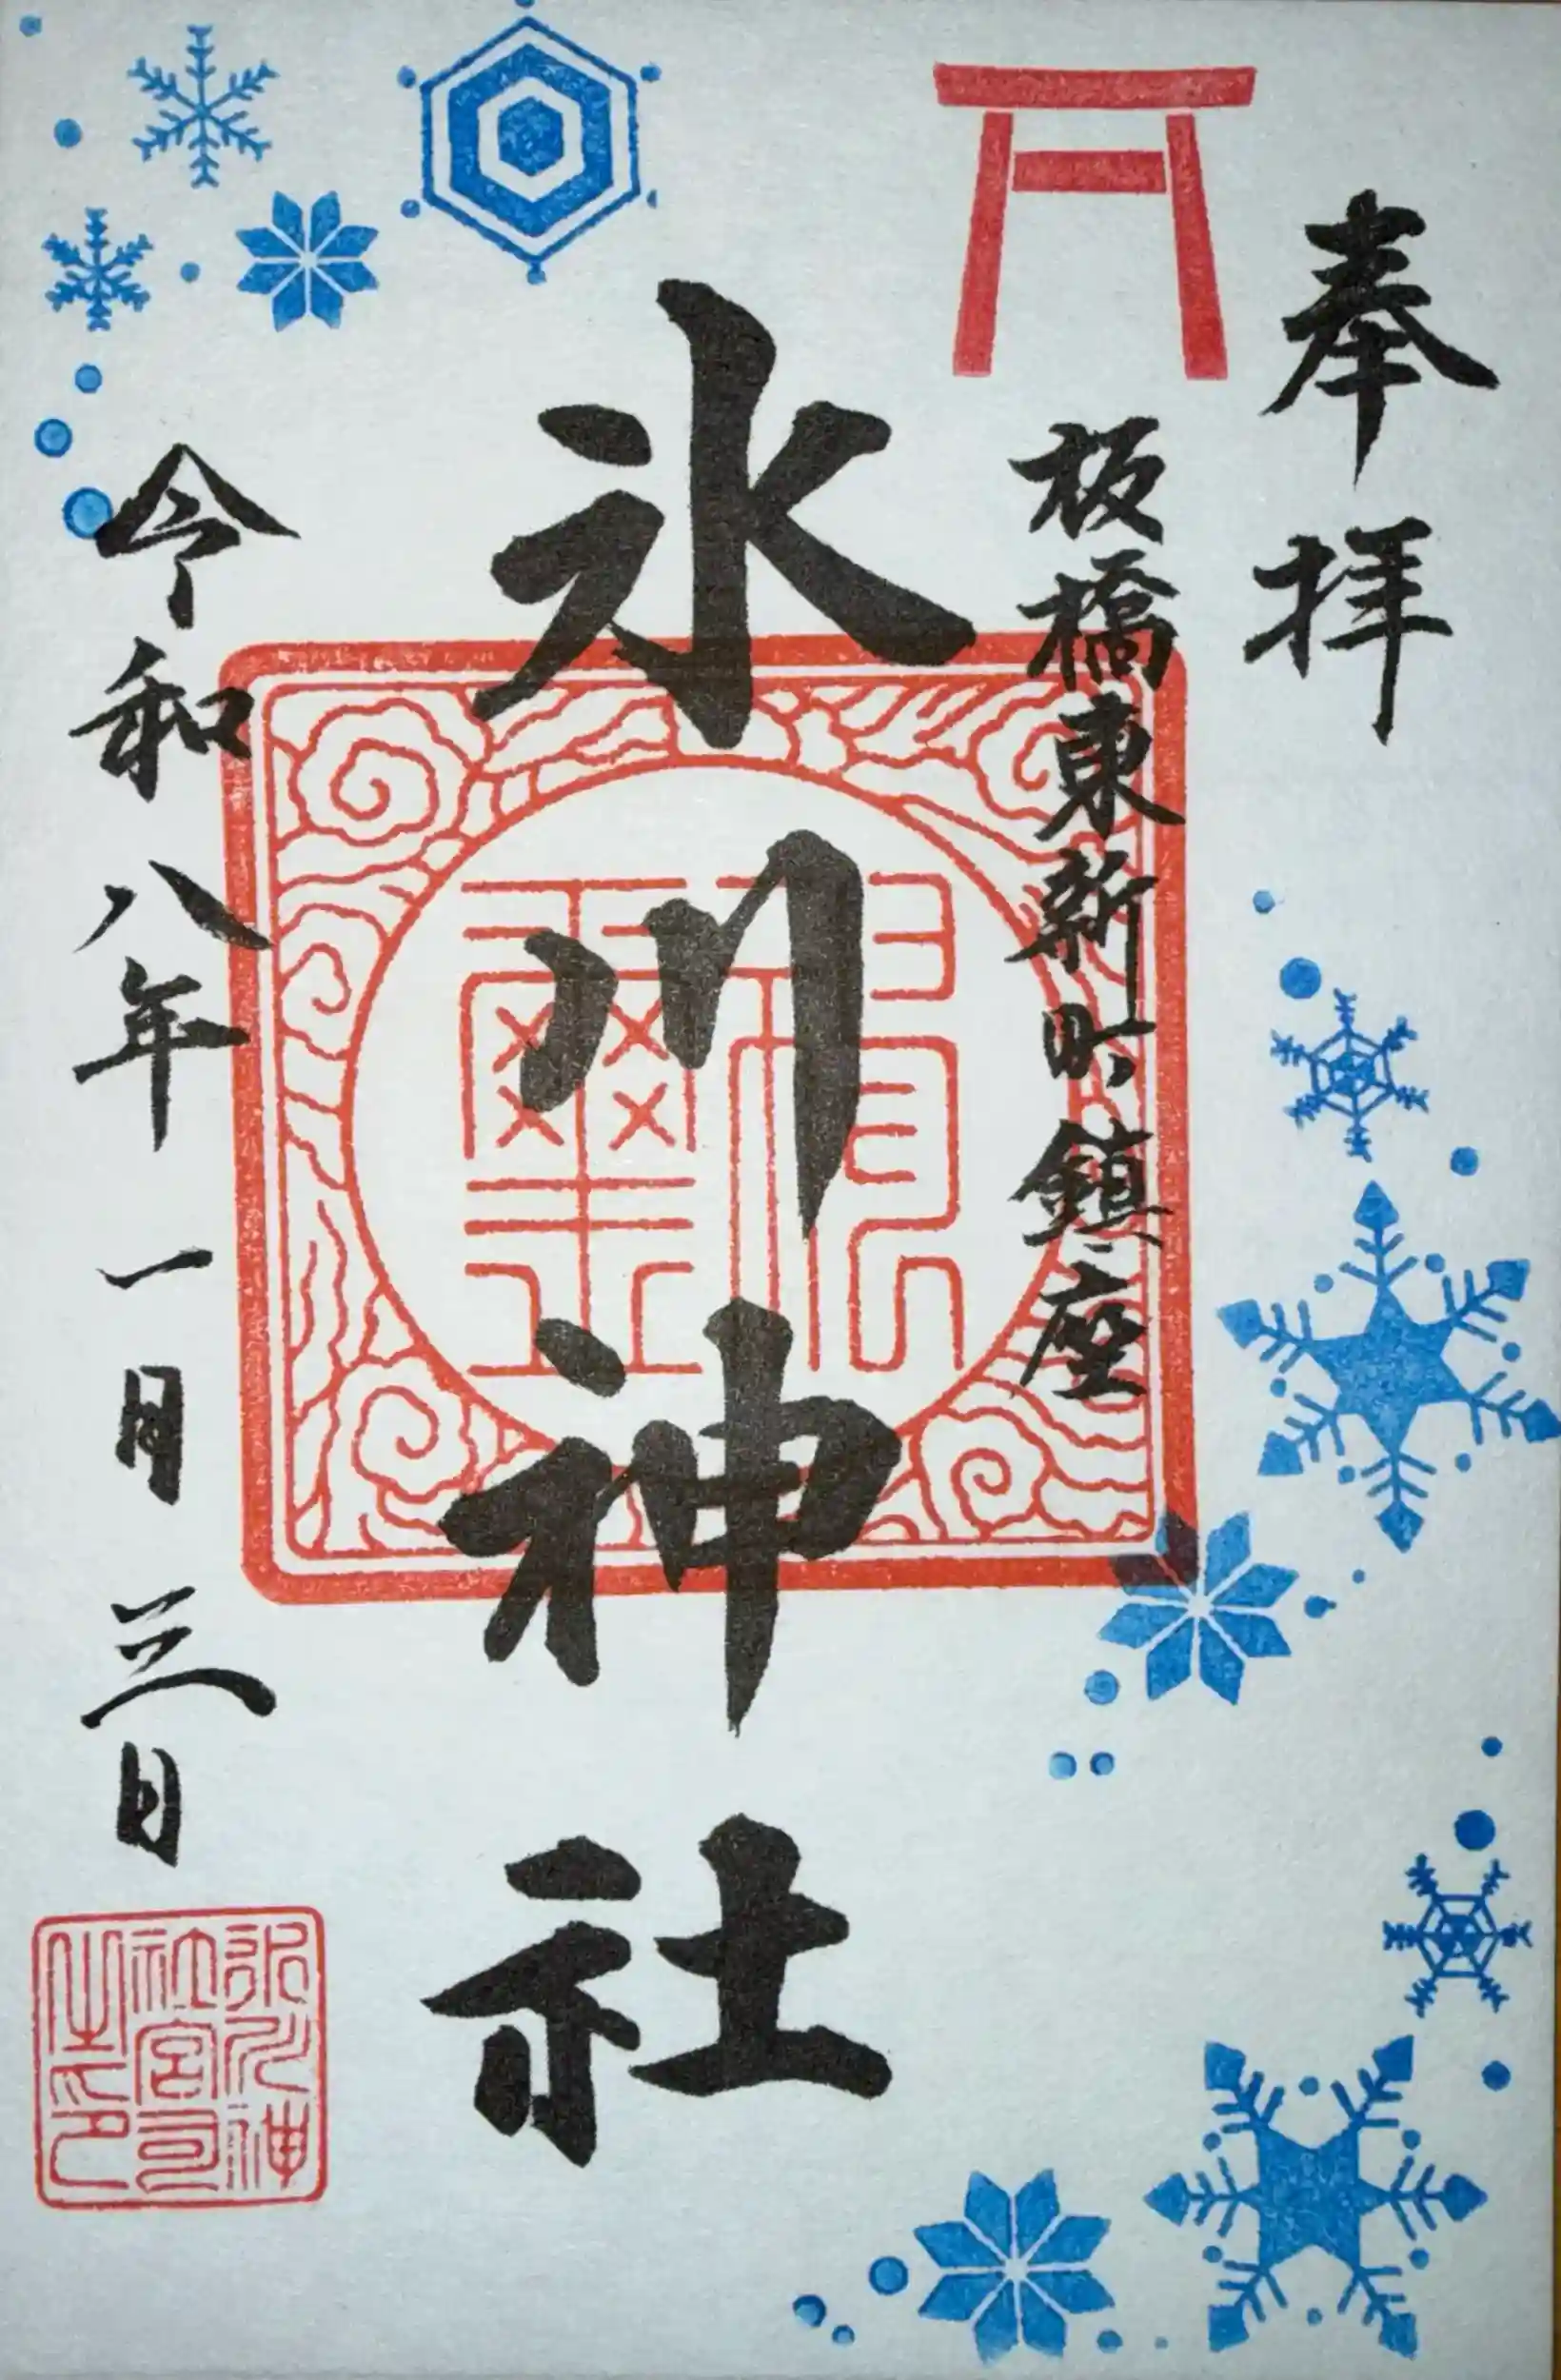 奉拝
板橋東新町鎮座
氷川神社
令和八年一月三日
氷川神社宮司之印